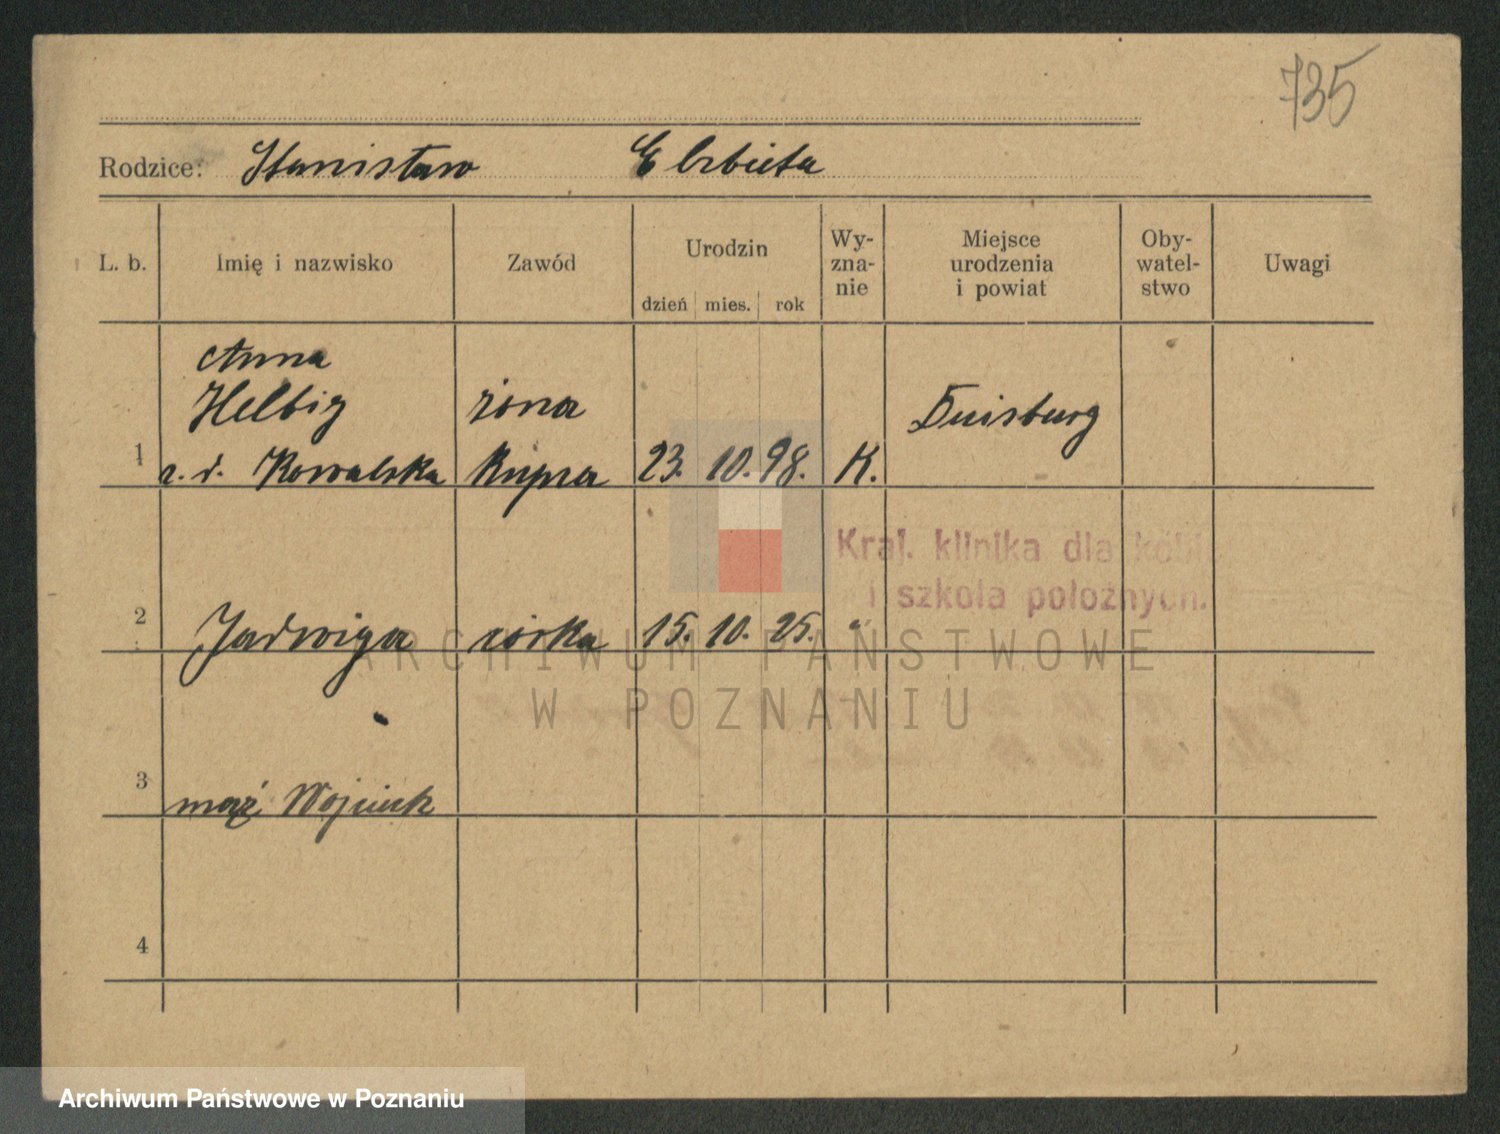 735
Rodzice: Stanisław Elzbieta
L. b. Imię i nazwisko Zawód Urodzin dzień mies. rok Wy-zna-nie Miejsce urodzenia i powiat Oby-watel-stwo Uwagi
Anna
Helbig żona Duisburg
1 z. d. Kowalska kupca 23. 10. 98. K.
Kraj. klinika dla kobi
i szkoła położnych.
2 Jadwiga córka 15. 10. 25. "
ARCHIWUM PAŃSTWOWE
W POZNANIU
3 mąż Wojciech
4
Archiwum Państwowe w Poznaniu